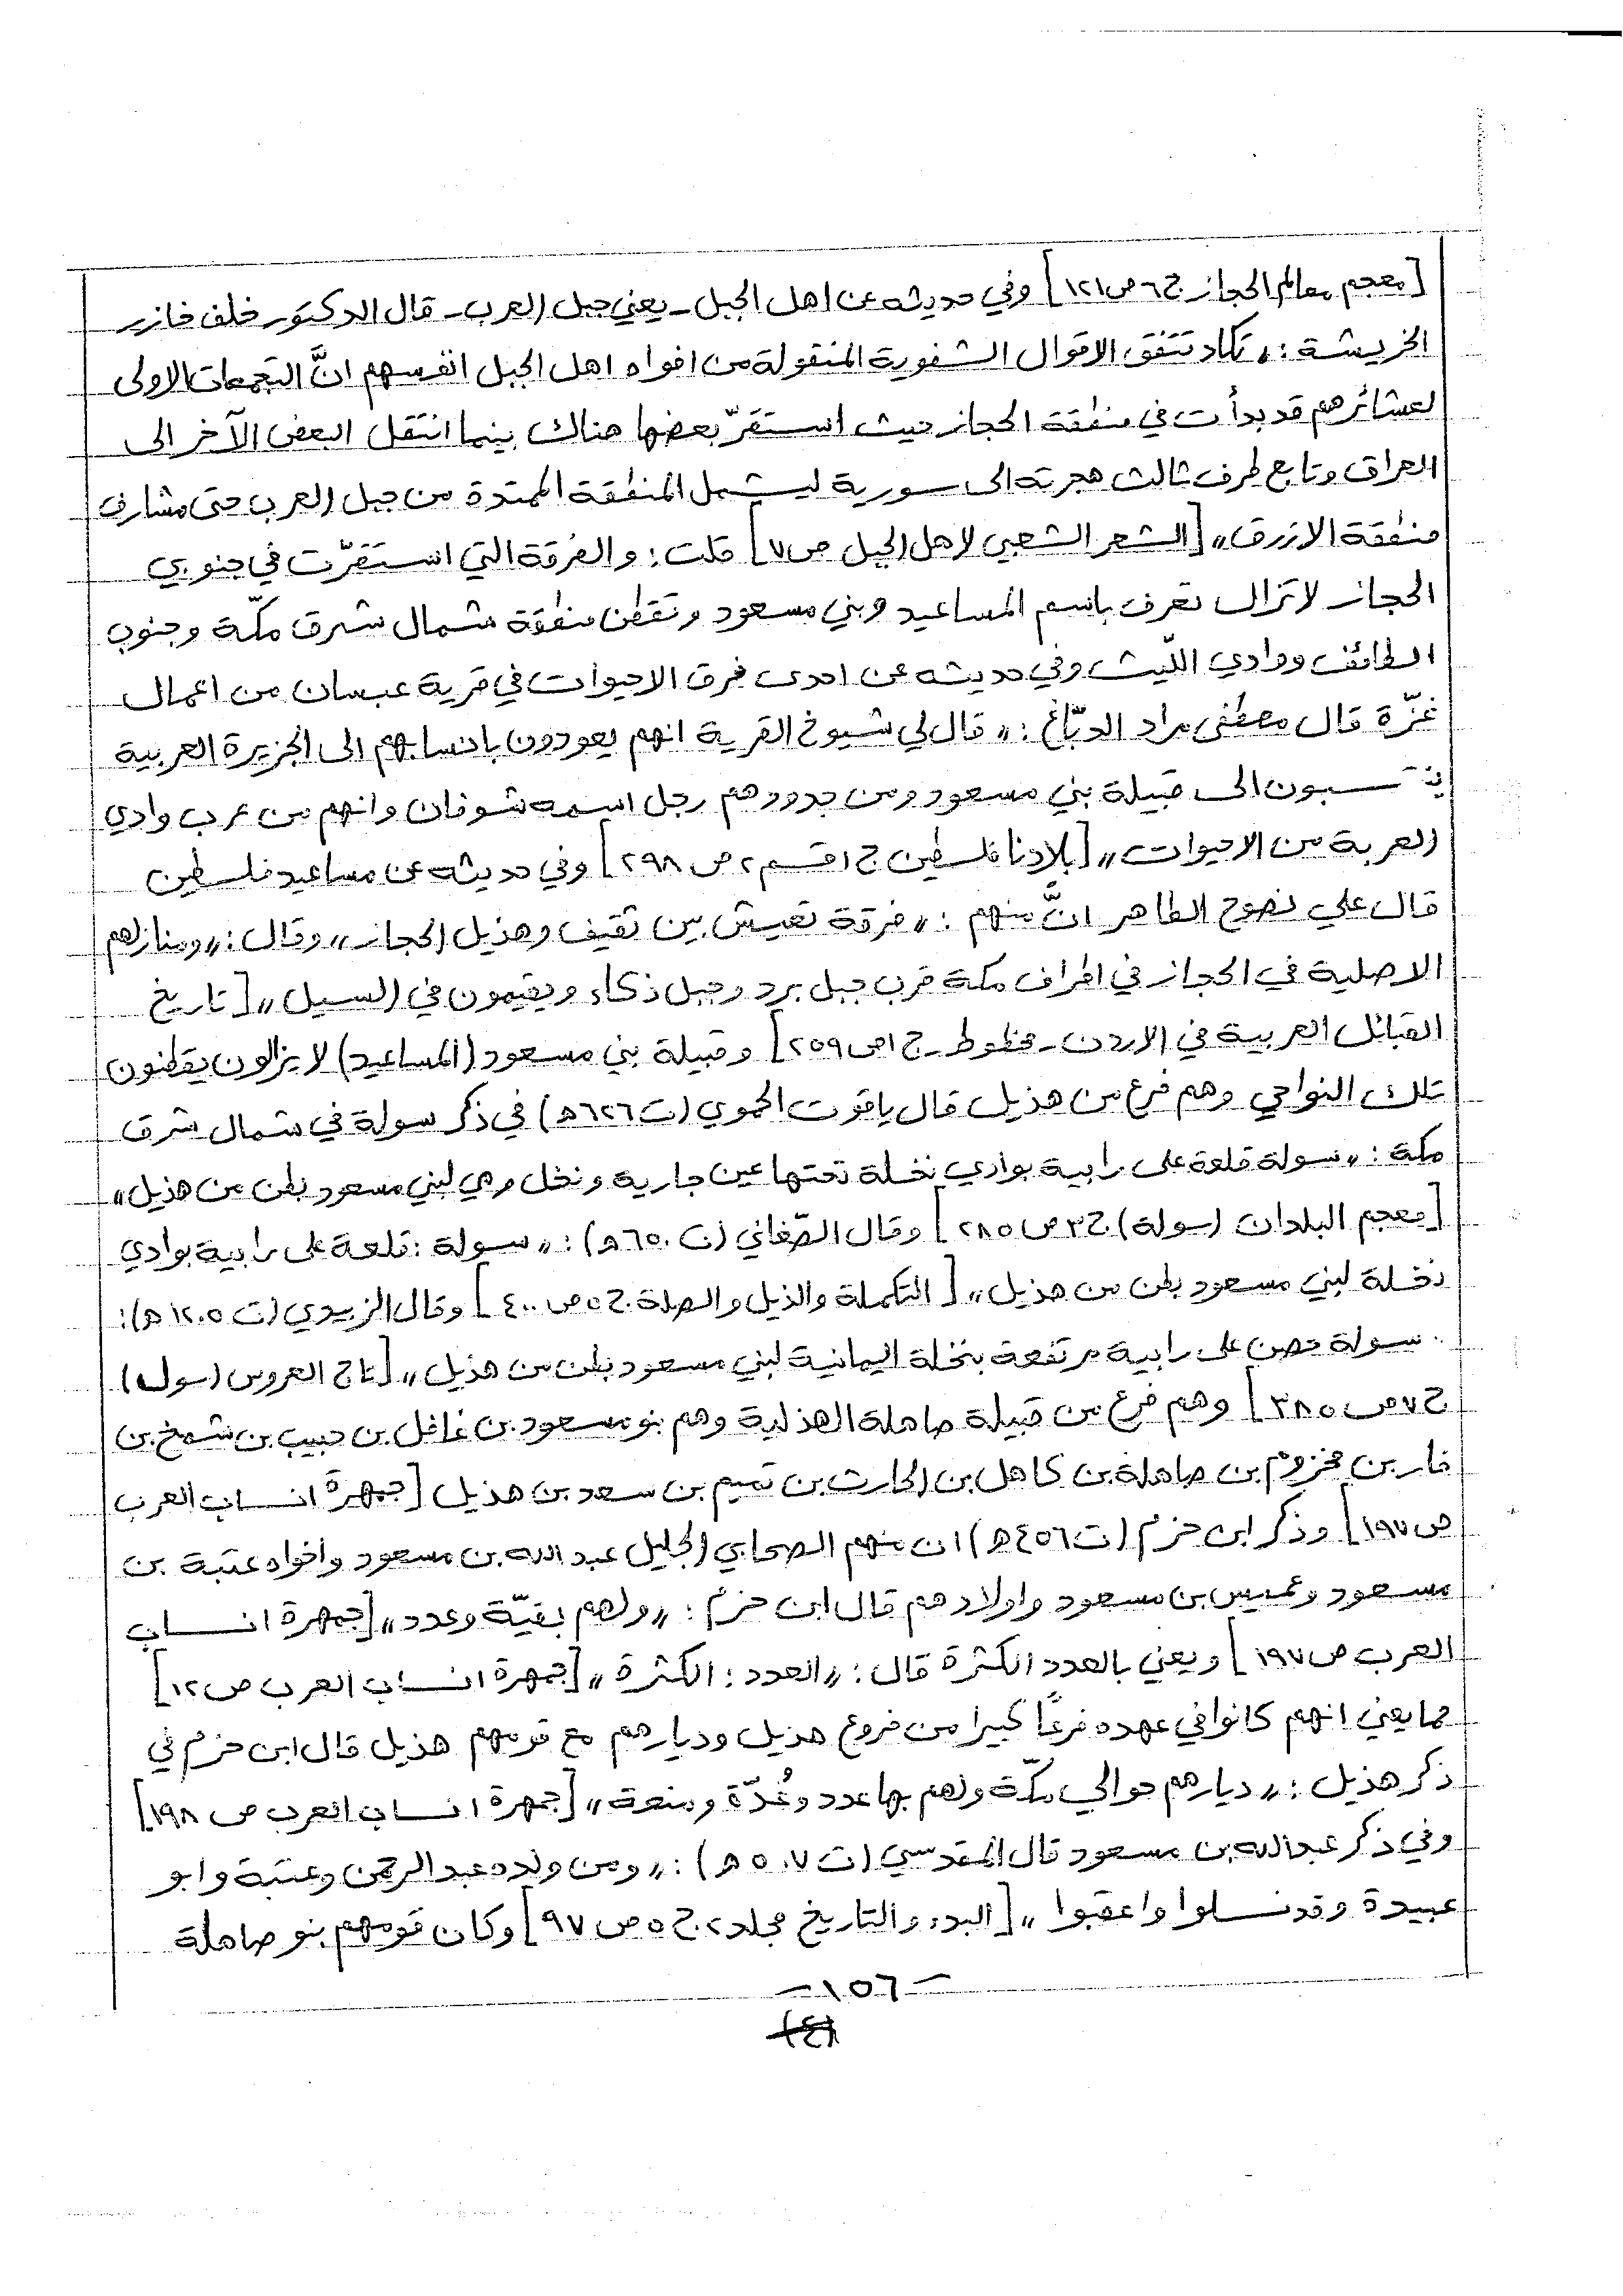 [معجم معالم الحجاز ج٦ ص١٢١] وفي حديثه عن اهل الجبل - يعني جبل العرب - قال الدكتور خلف خازر
الخريشة : „ تكاد تتفق الاقوال الشفوية المنقولة من افواه اهل الجبل انفسهم انَّ التجمعات الاولى
لعشائرهم قد بدأت في منطقة الحجاز حيث استقرّ بعضها هناك بينما انتقل البعض الآخر الى
العراق وتابع طرف ثالث هجرته الى سورية ليشمل المنطقة الممتدة من جبل العرب حتى مشارف
منطقة الازرق „ [الشعر الشعبي لاهل الجبل ص٧] قلت : والفرقة التي استقرّت في جنوبي
الحجاز لا تزال تعرف باسم المساعيد وبني مسعود وتقطن منطقة شمال شرق مكّة وجنوب
الطائف ووادي اللّيث وفي حديثه عن احدى فرق الاحيوات في قرية عبسان من اعمال
غزّة قال مصطفى مراد الدبّاغ : „ قال لي شيوخ القرية انهم يعودون بانسابهم الى الجزيرة العربية
ينتسبون الى قبيلة بني مسعود ومن جدودهم رجل اسمه شوفان وانهم من عرب وادي
العربة من الاحيوات „ [بلادنا فلسطين ج١ قسم ٢ ص ٢٩٨] وفي حديثه عن مساعيد فلسطين
قال علي نصوح الطاهر انَّ منهم : „ فرقة تعيش بين ثقيف وهذيل الحجاز „ وقال : „ ومنازلهم
الاصلية في الحجاز في اطراف مكة قرب جبل برد وجبل ذكاء ويقيمون في السيل „ [تاريخ
القبائل العربية في الاردن - مخطوط - ج١ ص٢٥٩] وقبيلة بني مسعود (المساعيد) لا يزالون يقطنون
تلك النواحي وهم فرع من هذيل قال ياقوت الحموي (ت ٦٢٦ هـ) في ذكر سولة في شمال شرق
مكة : „ سولة قلعة على رابية بوادي نخلة تحتها عين جارية ونخل وهي لبني مسعود بطن من هذيل „
[معجم البلدان (سولة) ج٣ ص ٢٨٥] وقال الصّغاني (ت ٦٥٠ هـ) : „ سولة : قلعة على رابية بوادي
نخلة لبني مسعود بطن من هذيل „ [التكملة والذيل والصلة ج٥ ص ٤٠٠] وقال الزبيدي (ت ١٢٠٥ هـ) :
سولة حصن على رابية مرتفعة بنخلة اليمانية لبني مسعود بطن من هذيل „ [تاج العروس (سول)
ج٧ ص ٣٨٥] وهم فرع من قبيلة صاهلة الهذلية وهم بنو مسعود بن غافل بن حبيب بن شمخ بن
فار بن مخزوم بن صاهلة بن كاهل بن الحارث بن تميم بن سعد بن هذيل [جمهرة انساب العرب
ص ١٩٧] وذكر ابن حزم (ت ٤٥٦ هـ) ان منهم الصحابي الجليل عبد الله بن مسعود واخواه عتبة بن
مسعود وعميس بن مسعود واولادهم قال ابن حزم : „ ولهم بقيّة وعدد „ [جمهرة انساب
العرب ص ١٩٧] ويعني بالعدد الكثرة قال : „ العدد : الكثرة „ [جمهرة انساب العرب ص ١٢]
مما يعني انهم كانوا في عهده فرعًا كبيرا من فروع هذيل وديارهم مع قومهم هذيل قال ابن حزم في
ذكر هذيل : „ ديارهم حوالي مكّة ولهم بها عدد وعُدّة ومنعة „ [جمهرة انساب العرب ص ١٩٨]
وفي ذكر عبد الله بن مسعود قال المقدسي (ت ٥٠٧ هـ) : „ ومن ولده عبد الرحمن وعتبة وابو
عبيدة وقد نسلوا واعقبوا „ [البدء والتاريخ مجلد ٢ ج ٥ ص ٩٧] وكان قومهم بنو صاهلة
- ١٥٦ -